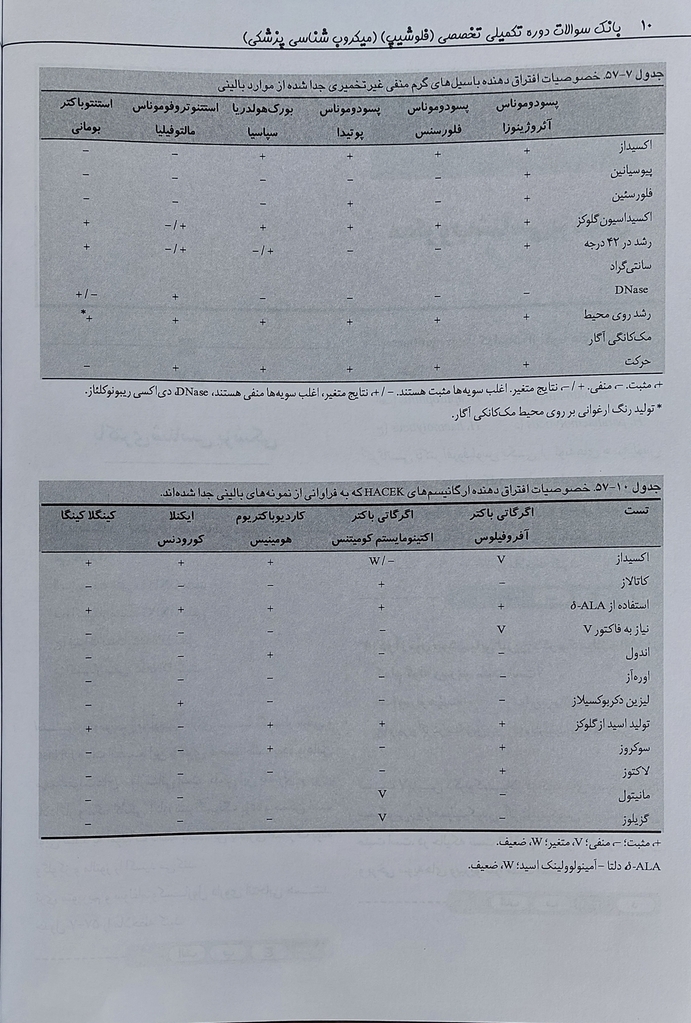 ۱۰ بانک سوالات دوره تکمیلی تخصصی (فلوشیپ) (میکروب شناسی پزشکی)
جدول ۷-۵۷. خصوصیات افتراق دهنده باسیل‌های گرم منفی غیرتخمیری جدا شده از موارد بالینی
پسودوموناس آئروژینوزا پسودوموناس فلورسنس پسودوموناس پوتیدا بورک‌هولدریا سپاسیا استنوتروفوموناس مالتوفیلیا اسینتوباکتر بومانی
اکسیداز + + + + – –
پیوسیانین + – – – – –
فلورسئین + + + – – –
اکسیداسیون گلوکز + + + + +/– +
رشد در ۴۲ درجه سانتی‌گراد + – – +/– +/– +
DNase – – – – + –/+
رشد روی محیط مک‌کانگی آگار + + + + + +*
حرکت + + + + + –
+، مثبت. –، منفی. + / –، نتایج متغیر. اغلب سویه‌ها مثبت هستند. – / +، نتایج متغیر، اغلب سویه‌ها منفی هستند، DNase، دی‌اکسی ریبونوکلئاز.
* تولید رنگ ارغوانی بر روی محیط مک‌کانگی آگار.
جدول ۱۰-۵۷. خصوصیات افتراق دهنده ارگانیسم‌های HACEK که به فراوانی از نمونه‌های بالینی جدا شده‌اند.
تست اگرگاتی باکتر آفروفیلوس اگرگاتی باکتر اکتینومایستم کومیتنس کاردیوباکتریوم هومینیس ایکنلا کورودنس کینگلا کینگا
اکسیداز V W/– + + +
کاتالاز – + – – –
استفاده از δ-ALA + + + + +
نیاز به فاکتور V V – – – –
اندول – – + – –
اوره‌آز – – – – –
لیزین دکربوکسیلاز – – – + –
تولید اسید از گلوکز + + + – +
سوکروز + – + – –
لاکتوز + – – – –
مانیتول – V – – –
گزیلوز – V – – –
+، مثبت؛ –، منفی؛ V، متغیر؛ W، ضعیف.
δ-ALA، دلتا – آمینولوولینک اسید؛ W، ضعیف.